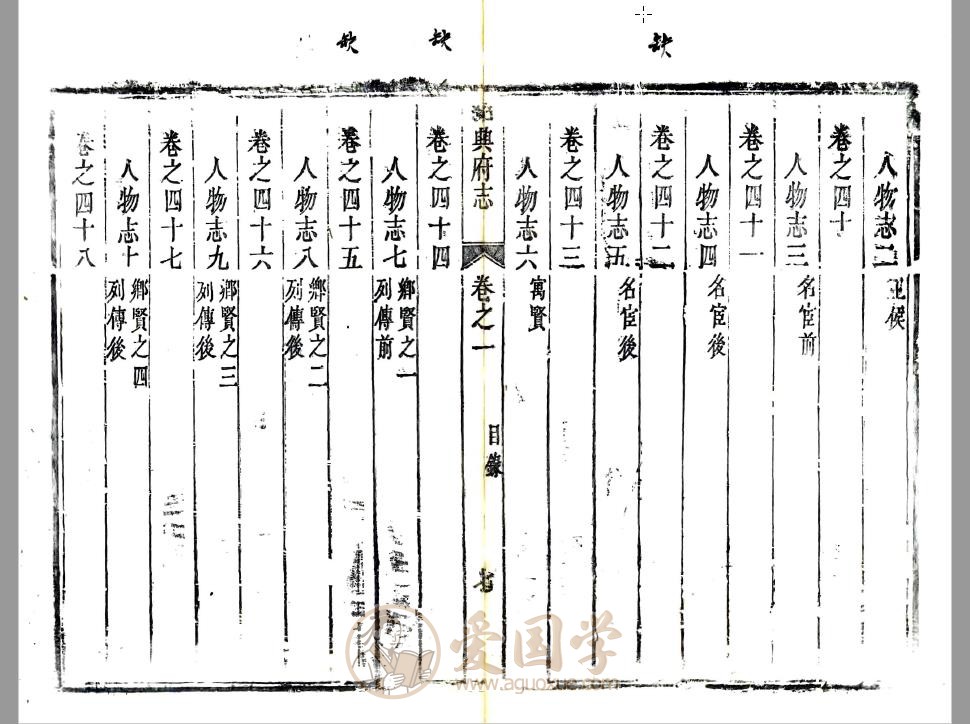 缺
人物志二 王侯
卷之四十
人物志三 名宦前
卷之四十一
人物志四 名宦後
卷之四十二
人物志五 名宦後
卷之四十三
人物志六 寓賢
興府志 卷之一 目錄
缺
卷之四十四
人物志七 鄉賢之一 列傳前
缺
卷之四十五
人物志八 鄉賢之二 列傳後
卷之四十六
人物志九 鄉賢之三 列傳後
卷之四十七
人物志十 鄉賢之四 列傳後
卷之四十八
爱国学